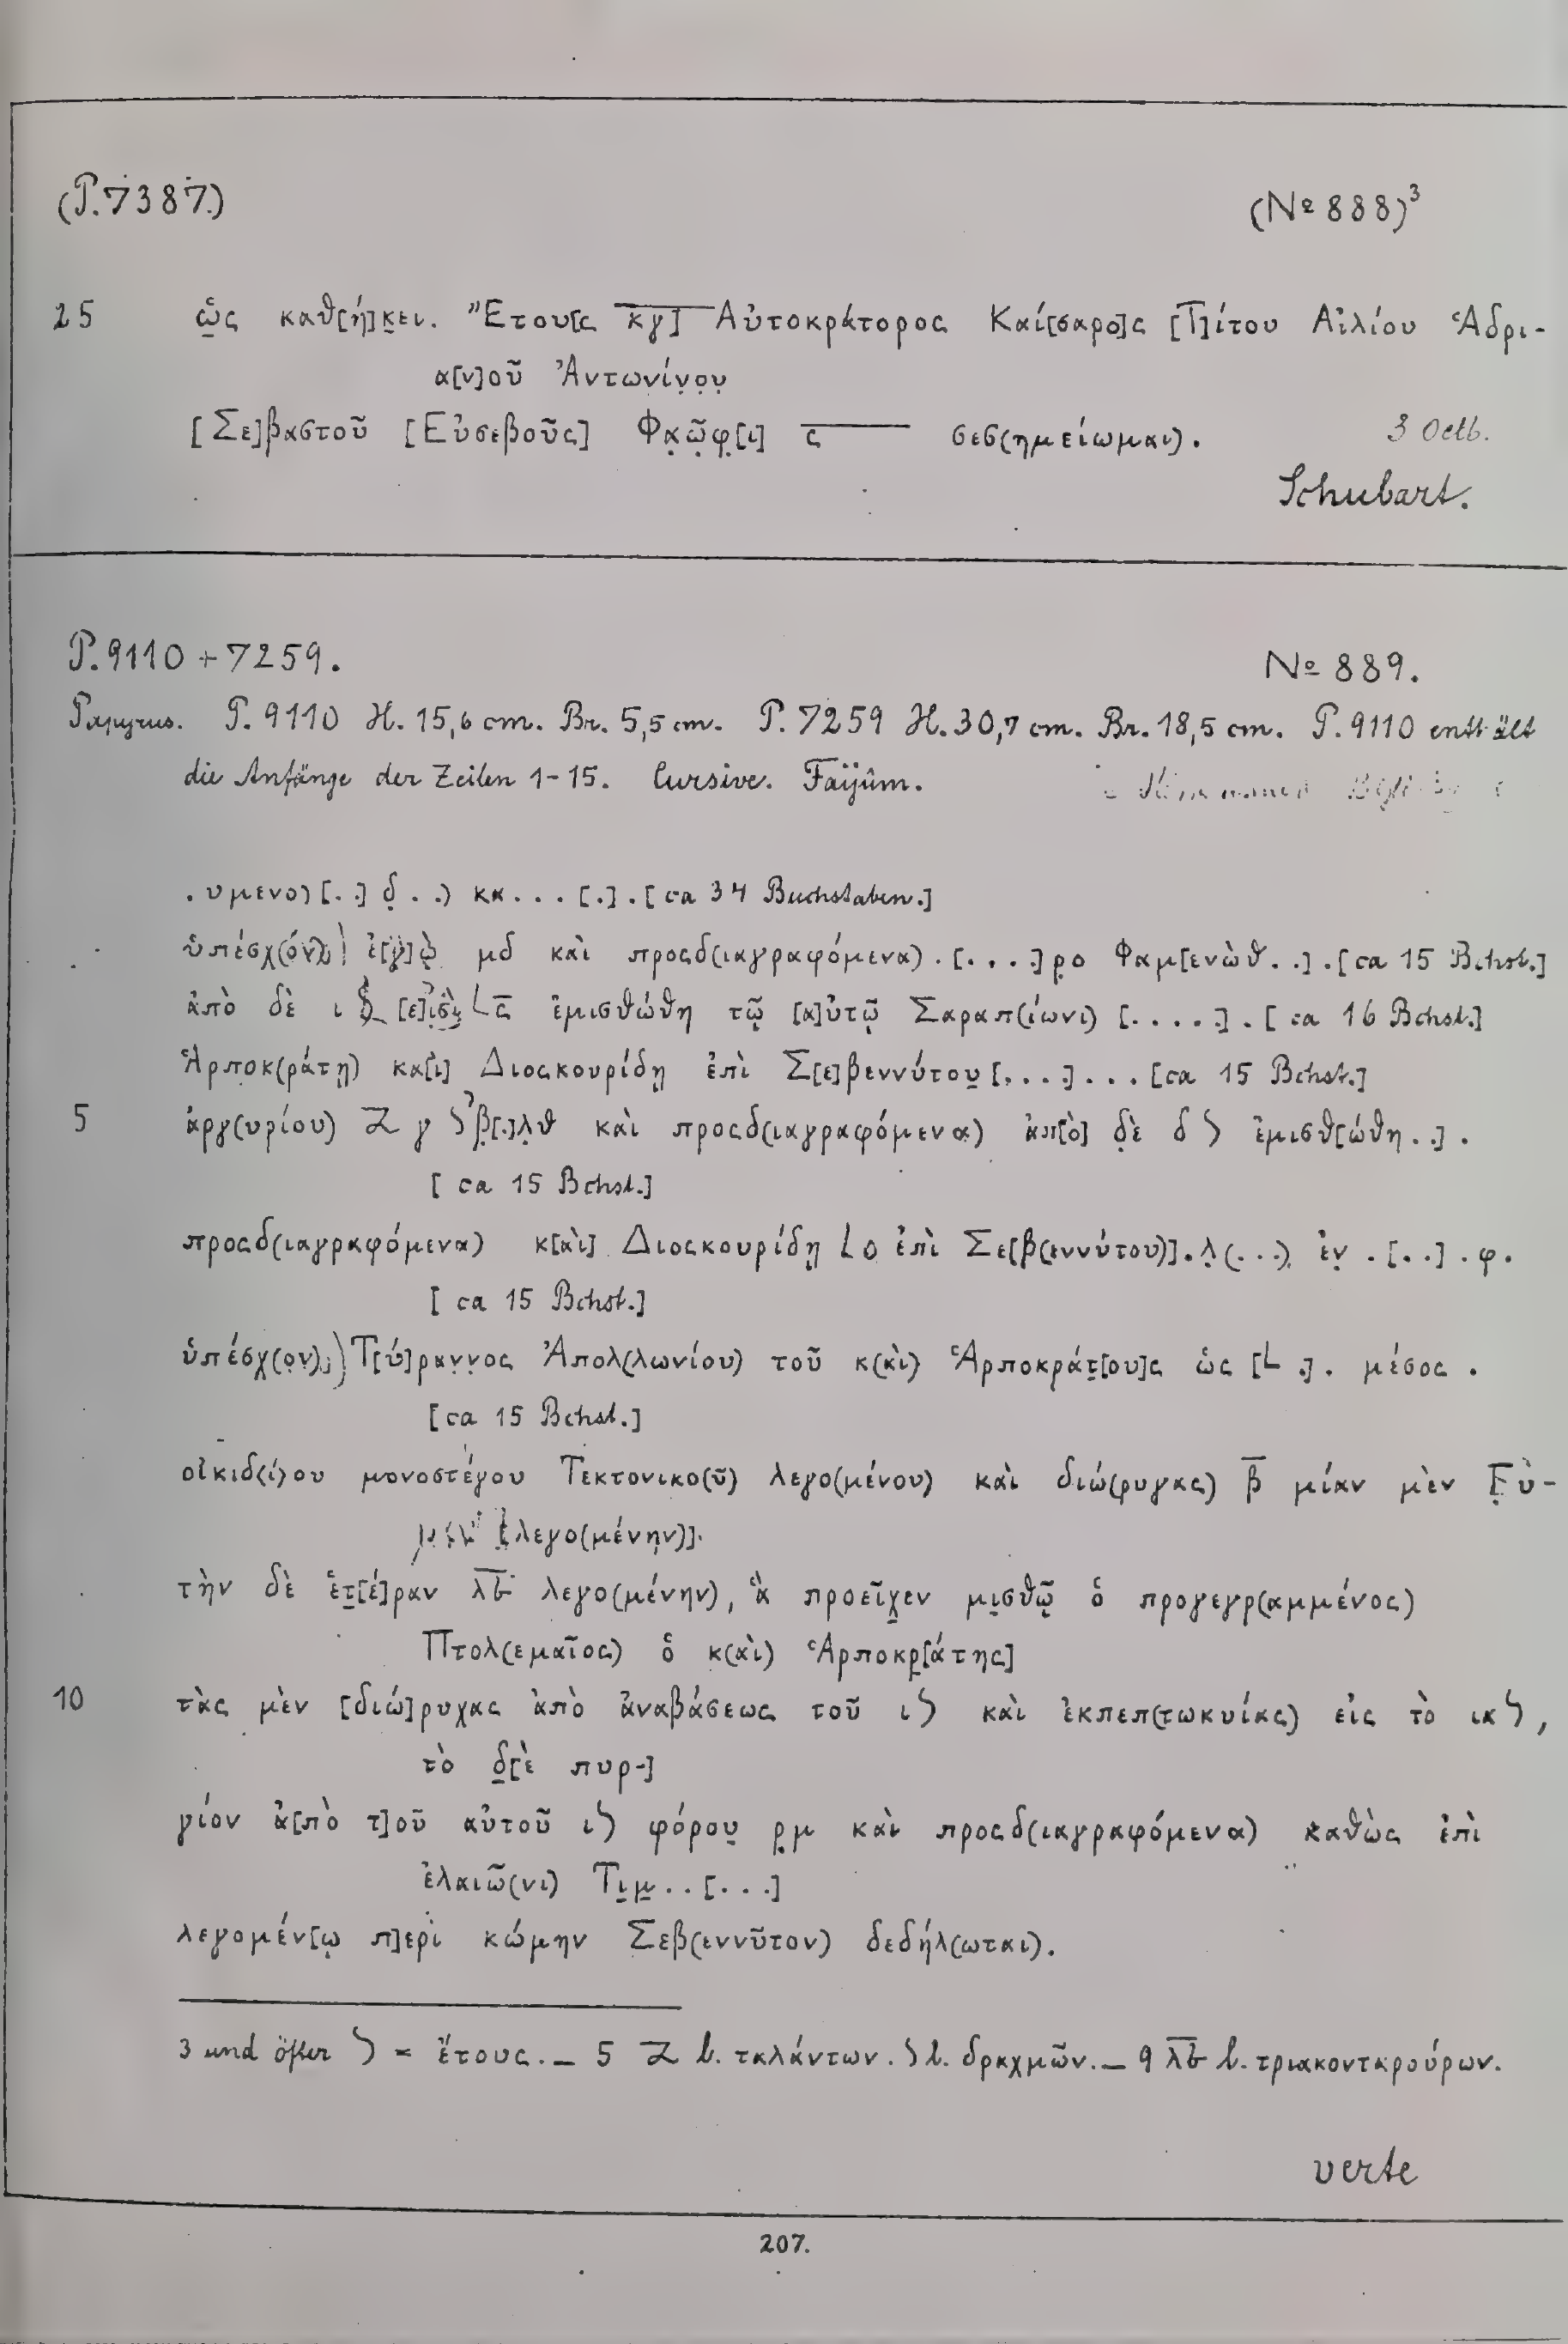 (P. 7387.) (№ 888)³
25 ὡ̣ς καθ[ή]κ̣ει. Ἔτου[ς κ̅γ̅] Αὐτοκράτορος Καί[σαρο]ς [Τ]ίτου Αἰλίου Ἁδρι-
α[ν]οῦ Ἀντωνίν̣ο̣υ̣
[Σε]βαστοῦ [Εὐσεβοῦς] Φα̣ῶ̣φ̣[ι] ς̅ σεσ(ημείωμαι). 3 Octb.
Schubart.
P. 9110 + 7259. № 889.
Papyrus. P. 9110 H. 15,6 cm. Br. 5,5 cm. P. 7259 H. 30,7 cm. Br. 18,5 cm. P. 9110 enthält
die Anfänge der Zeilen 1-15. Cursive. Faijûm.
. υμενο) [. .] δ̣ . .) κα . . . [.] . [ca 34 Buchstaben.]
ὑπέσχ(ον) μδ καὶ προςδ(ιαγραφόμενα) . [. . . .]ρ̣ο Φαμ[ενὼθ . .] . [ca 15 Bchst.]
ἀπὸ δὲ ι └ς̅ ἐμισθώθη τῷ [α]ὐτῷ Σαραπ(ίωνι) [. . . . .] . [ca 16 Bchst.]
Ἁρποκ(ράτῃ) κα[ὶ] Διοςκουρίδῃ ἐπὶ Σ[ε]βεννύτου̣ [. . . .] . . . [ca 15 Bchst.]
5 ἀργ(υρίου) Ζ γ 𐅹 β̣[.]λ̣θ καὶ προςδ(ιαγραφόμενα) ἀπ[ὸ] δ̣ὲ δ 𐅹 ἐμισθ[ώθη . .] .
[ca 15 Bchst.]
προςδ(ιαγραφόμενα) κ[αὶ] Διοςκουρίδῃ └ο ἐπὶ Σε[β(εννύτου)] . λ̣(. . .) ἐν̣ . [. .] . φ .
[ca 15 Bchst.]
ὑπέσχ(ον) Τ[ύ]ραν̣ν̣ος Ἀπολ(λωνίου) τοῦ κ(αὶ) Ἁρποκράτ̣[ου]ς ὡς [└ .] . μέσος .
[ca 15 Bchst.]
οἰκιδ(ί)ου μονοστέγου Τεκτονικο(ῦ) λεγο(μένου) καὶ διώ(ρυγας) β̅ μίαν μὲν Ε̣ὐ-
[λεγο(μένην)].
τὴν δὲ ἑτ̣[έ]ραν λ̅𐆆̅ λεγο(μένην), ἃ προεῖχ̣εν μι̣σθῷ ὁ προγεγρ(αμμένος)
Πτολ(εμαῖος) ὁ κ(αὶ) Ἁρποκρ̣[άτης]
10 τὰς μὲν [διώ]ρυχας ἀπὸ ἀναβάσεως τοῦ ι𐅹 καὶ ἐκπεπ(τωκυίας) εἰς τὸ ια𐅹,
τὸ δ̣[ὲ πυρ-]
γίον ἀ[πὸ τ]οῦ αὐτοῦ ι𐅹 φόρου̣ ρ̣μ καὶ προςδ(ιαγραφόμενα) καθὼς ἐπὶ
ἐλαιῶ(νι) Τι̣μ̣ . . [. . .]
λεγομέν[ῳ π]ερὶ κώμην Σεβ(εννῦτον) δεδήλ(ωται).
3 und öfter 𐅹 = ἔτους. — 5 Ζ l. ταλάντων. 𐅹 l. δραχμῶν. — 9 λ̅𐆆̅ l. τριακονταρούρων.
verte
207.